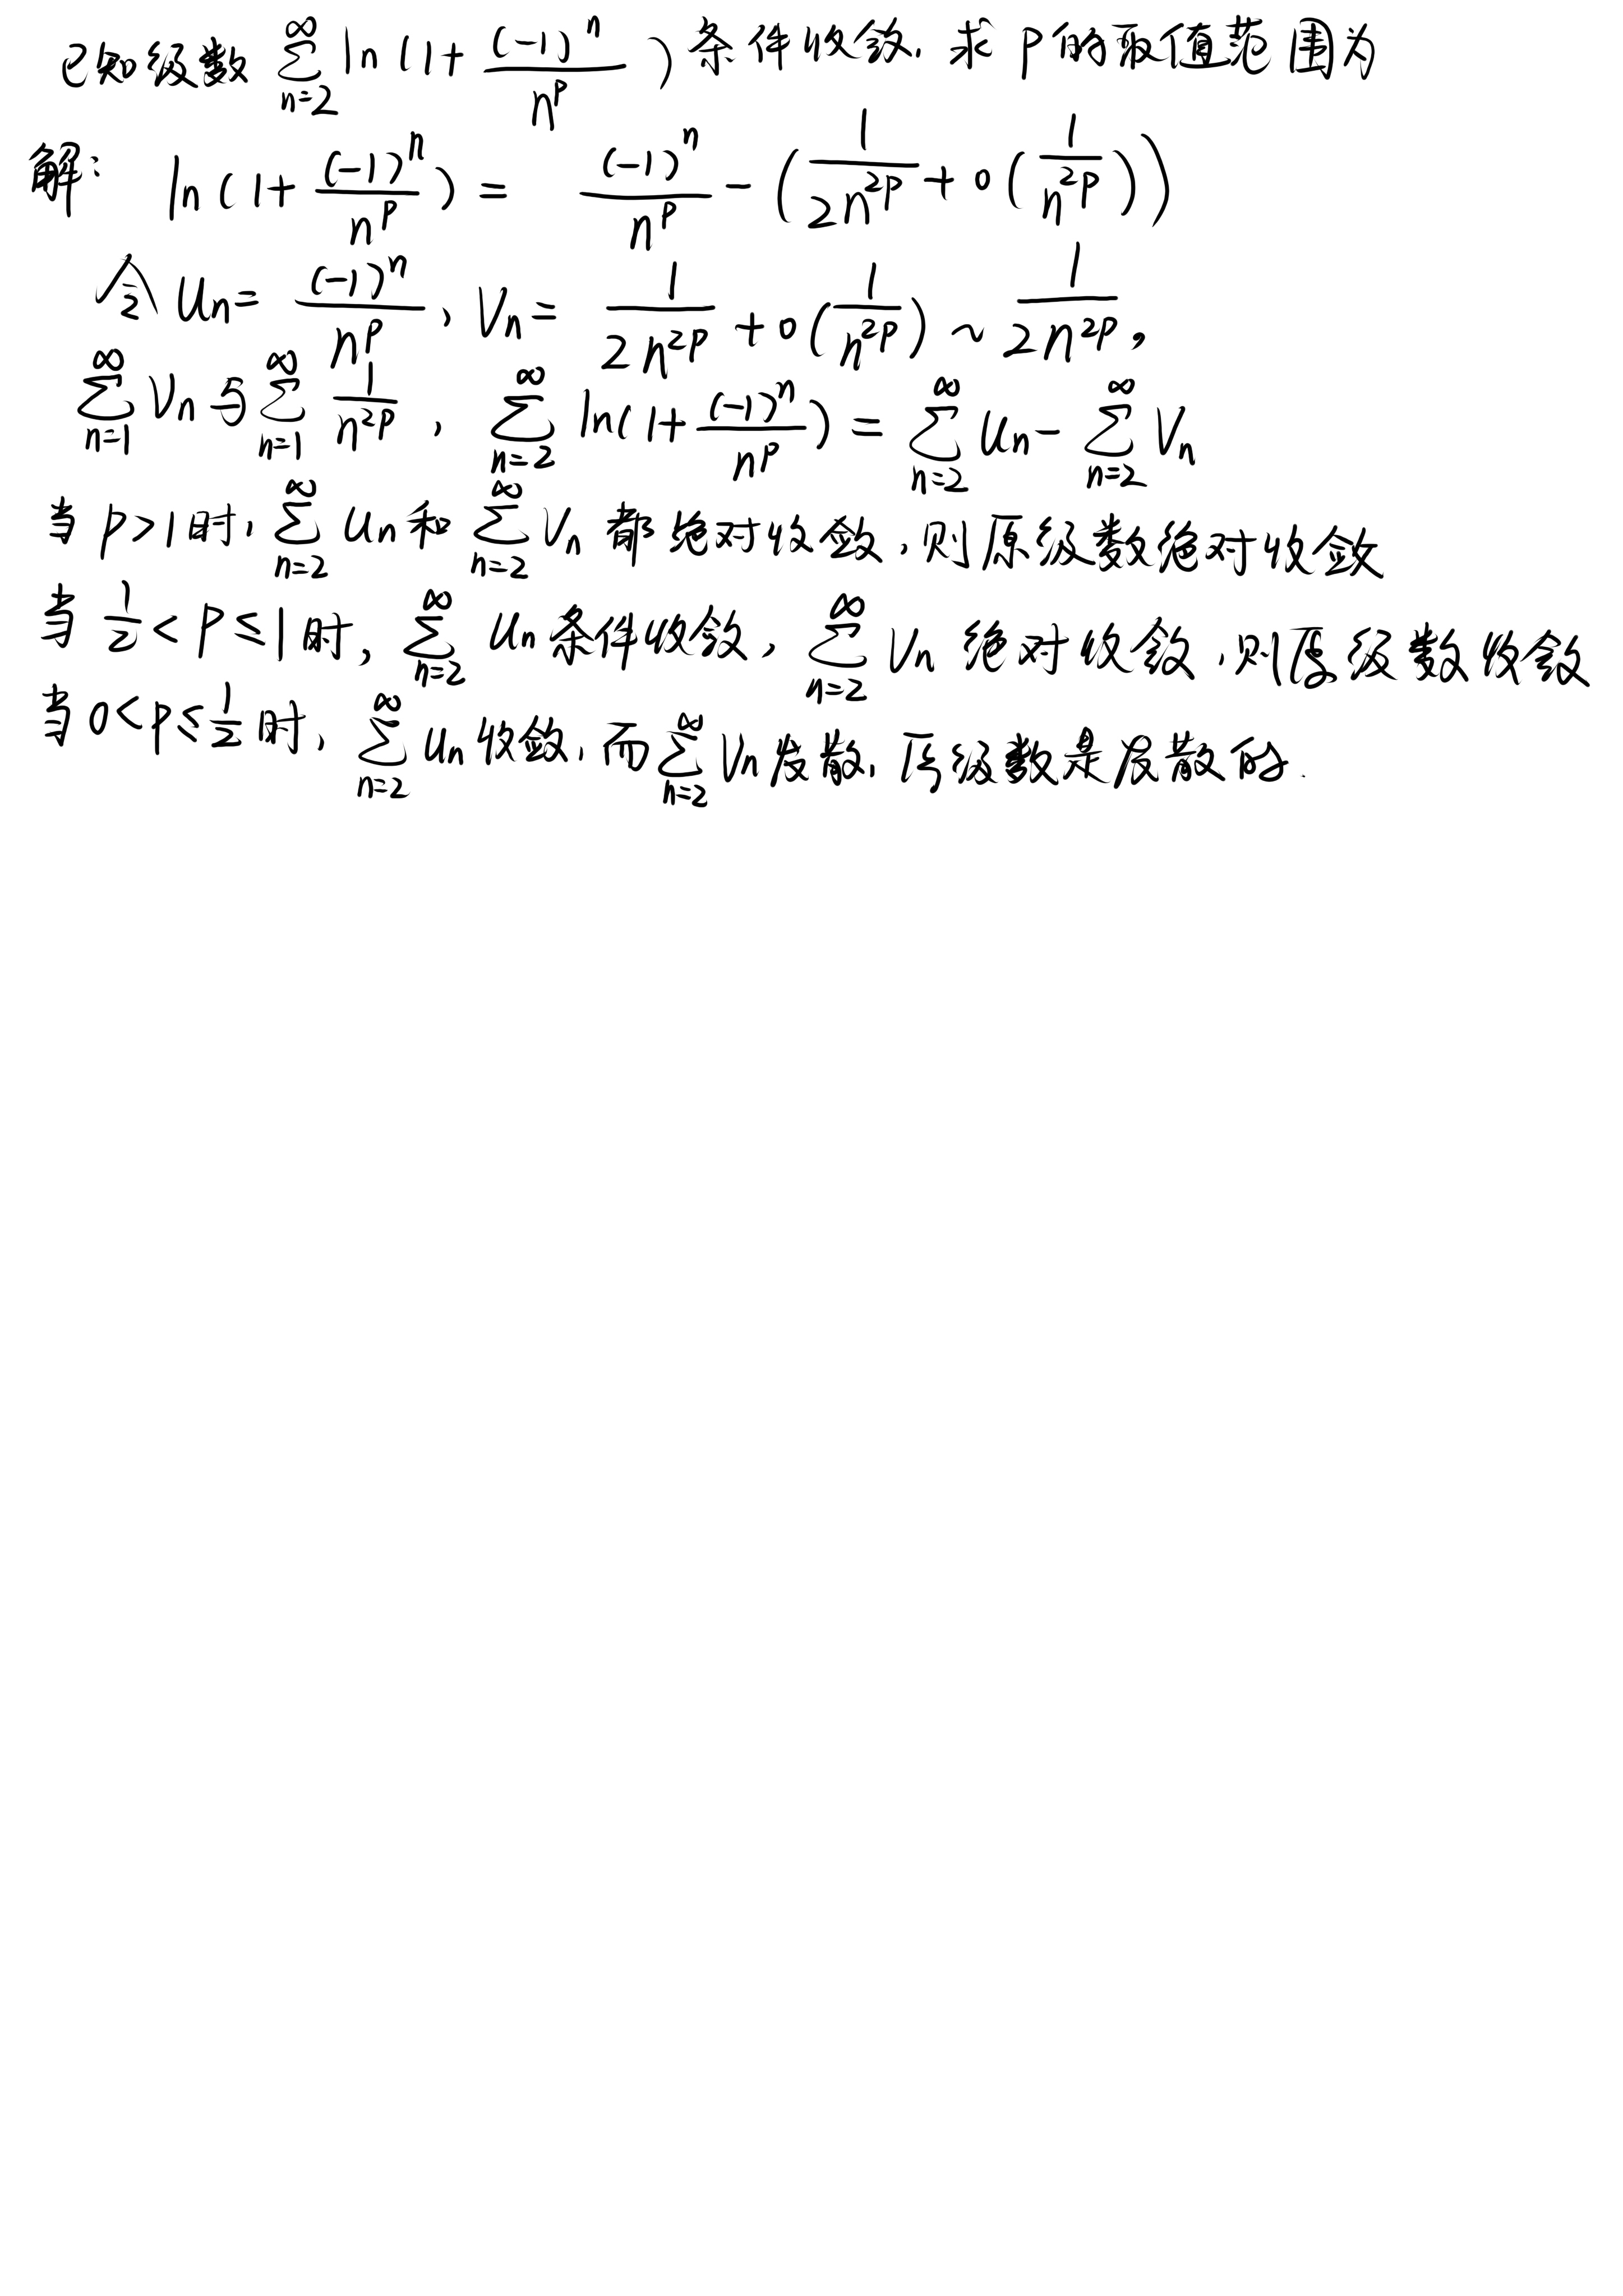 已知级数 $\sum_{n=2}^{\infty} \ln(1+\frac{(-1)^n}{n^p})$ 条件收敛, 求 p 的取值范围为
解: $\ln(1+\frac{(-1)^n}{n^p}) = \frac{(-1)^n}{n^p} - (\frac{1}{2n^{2p}} + o(\frac{1}{n^{2p}}))$
令 $u_n = \frac{(-1)^n}{n^p}$, $V_n = \frac{1}{2n^{2p}} + o(\frac{1}{n^{2p}}) \sim \frac{1}{2n^{2p}}$,
$\sum_{n=1}^{\infty} V_n$ 与 $\sum_{n=1}^{\infty} \frac{1}{n^{2p}}$, $\sum_{n=2}^{\infty} \ln(1+\frac{(-1)^n}{n^p}) = \sum_{n=2}^{\infty} u_n - \sum_{n=2}^{\infty} V_n$
当 $p>1$ 时, $\sum_{n=2}^{\infty} u_n$ 和 $\sum_{n=2}^{\infty} V_n$ 都绝对收敛, 则原级数绝对收敛
当 $\frac{1}{2} < p \le 1$ 时, $\sum_{n=2}^{\infty} u_n$ 条件收敛, $\sum_{n=2}^{\infty} V_n$ 绝对收敛, 则原级数收敛
当 $0 < p \le \frac{1}{2}$ 时, $\sum_{n=2}^{\infty} u_n$ 收敛, 而 $\sum_{n=2}^{\infty} V_n$ 发散, 原级数是发散的.